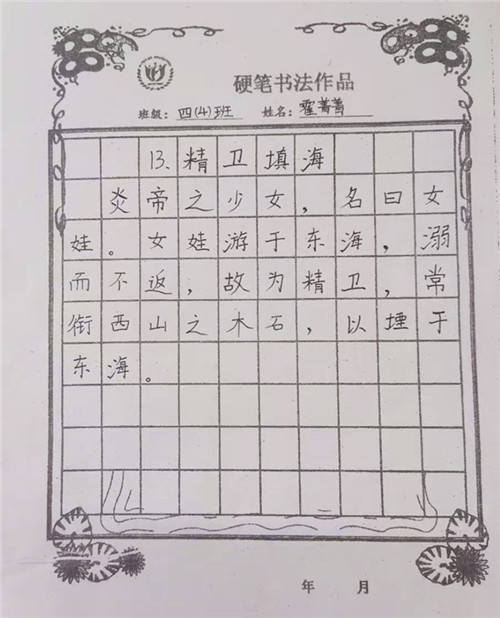 硬笔书法作品
班级：四(4)班 姓名：霍菁菁
13、精卫填海
炎帝之少女，名曰女
娃。女娃游于东海，溺
而不返，故为精卫，常
衔西山之木石，以堙于
东海。
年 月